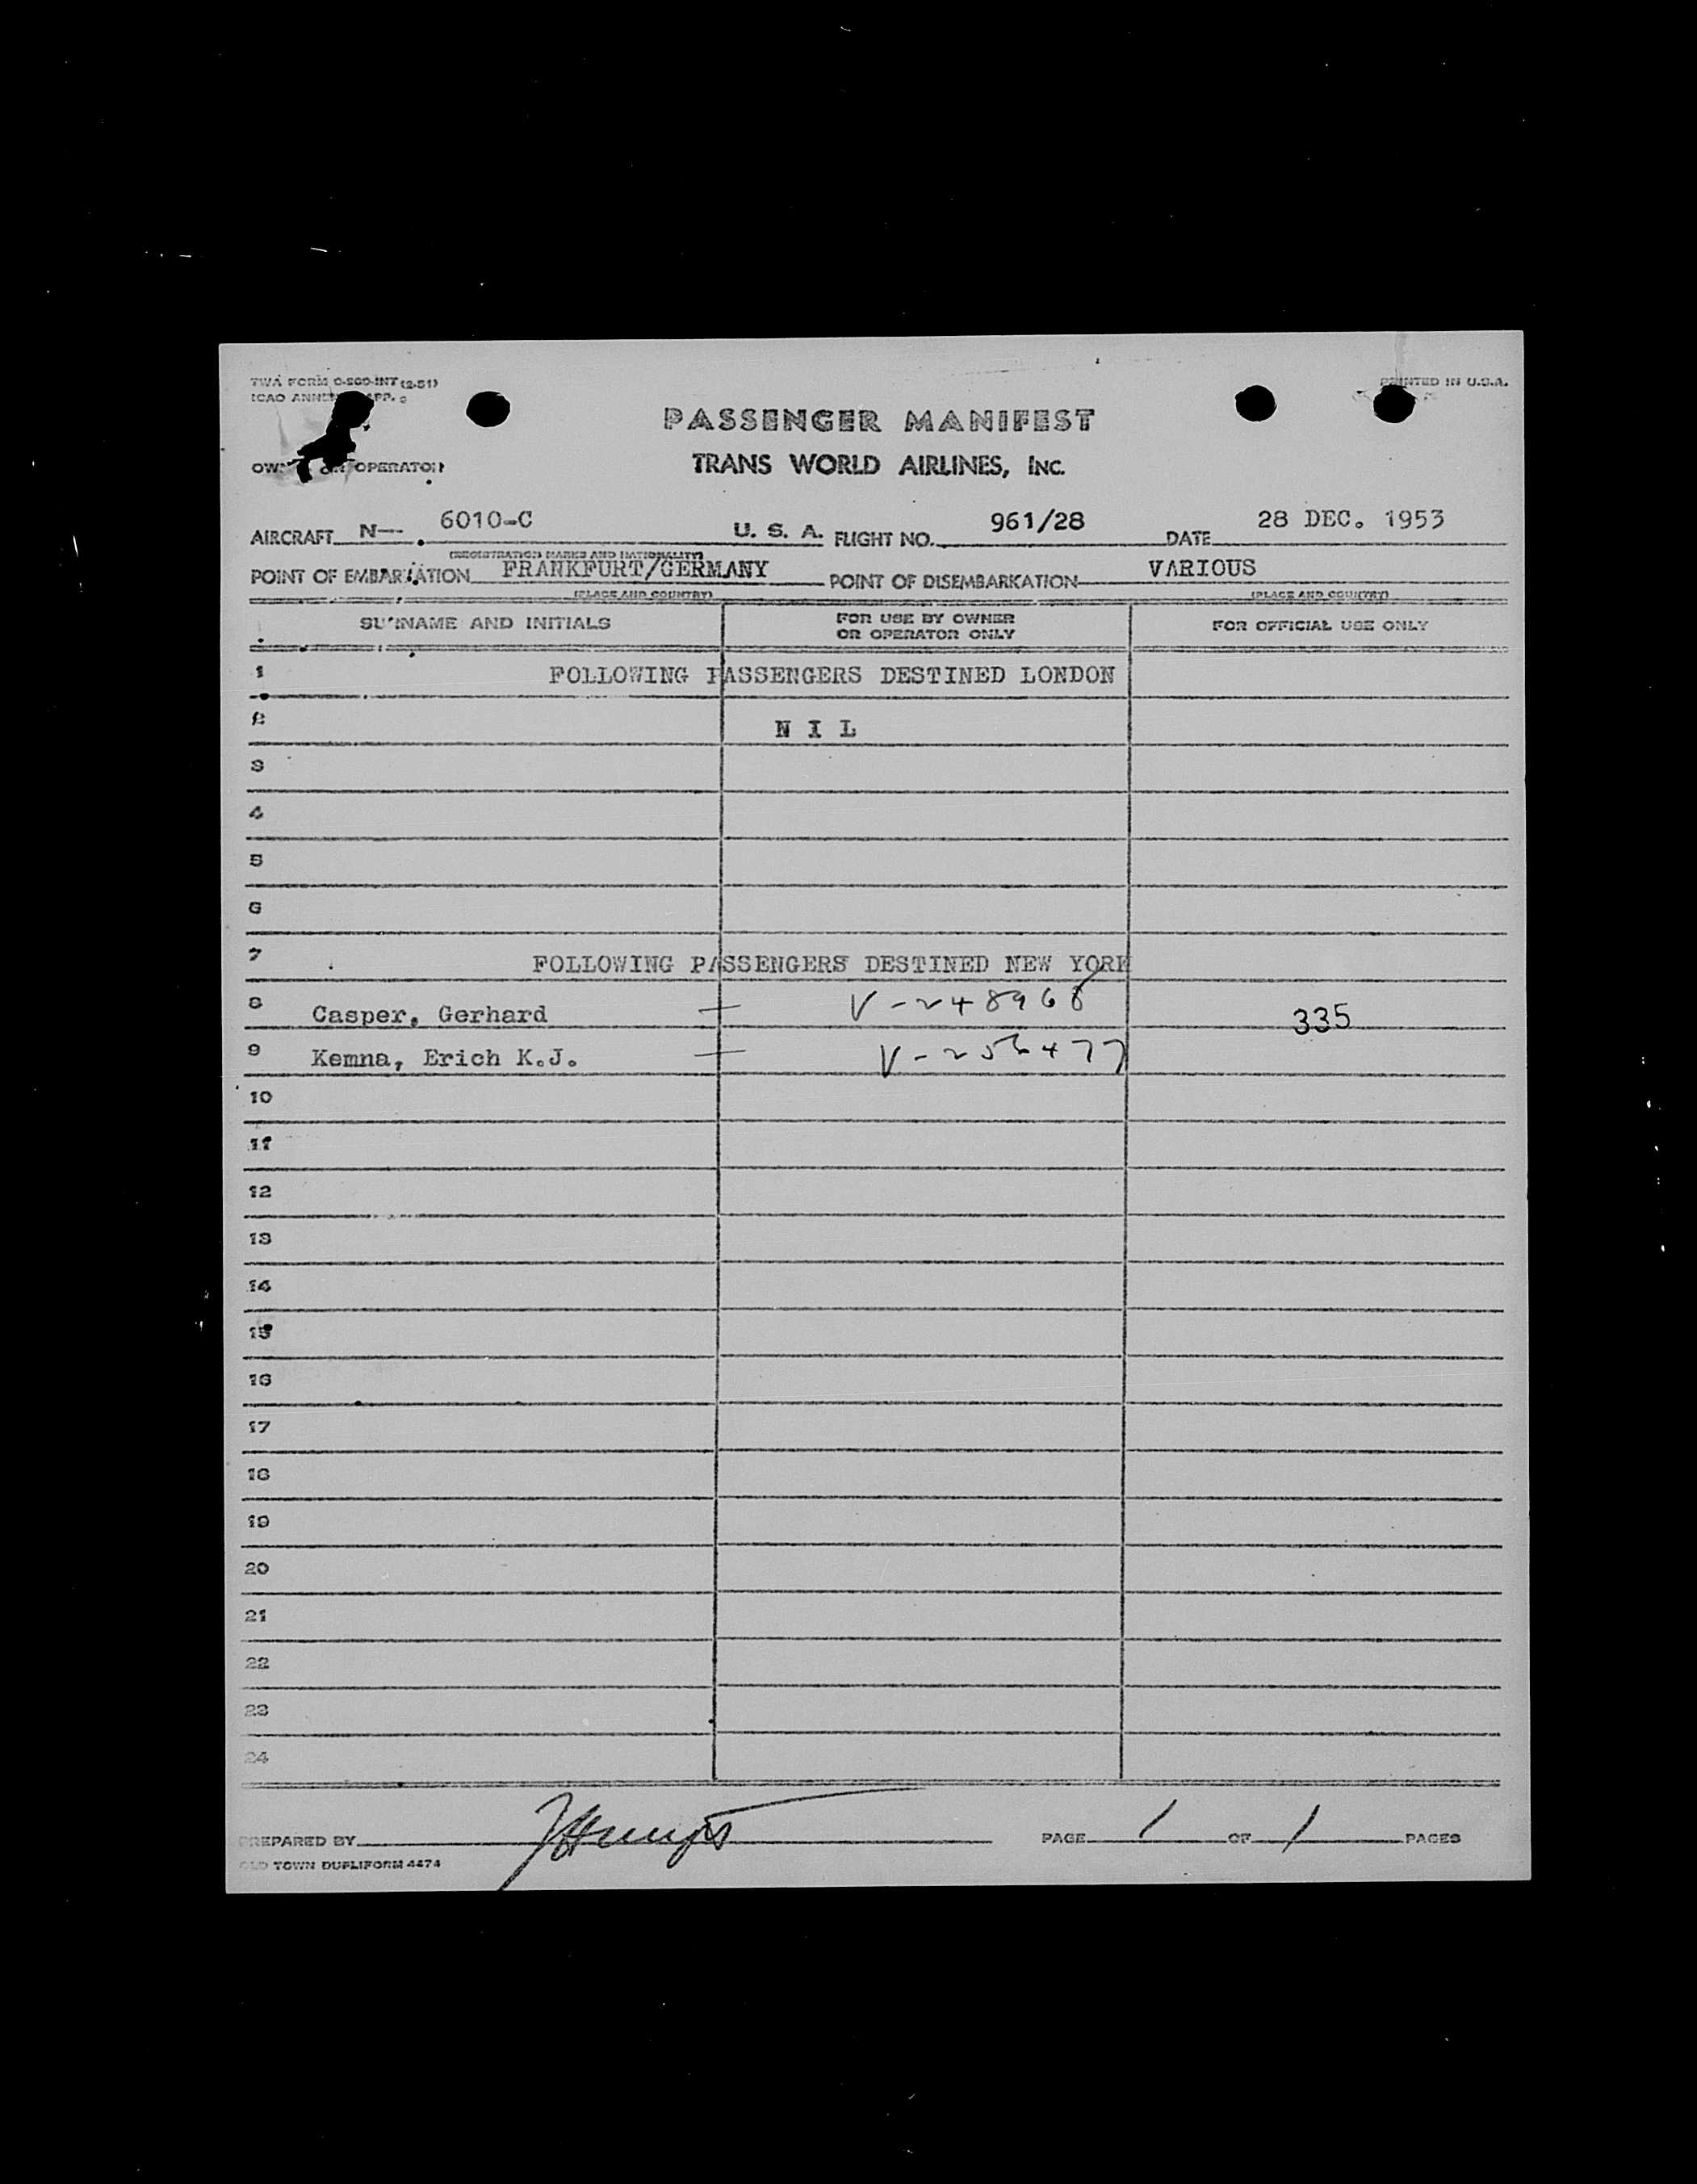 TWA FORM O-200-INT (2-51)
PRINTED IN U.S.A.
ICAO
PASSENGER MANIFEST
OPERATOR
TRANS WORLD AIRLINES, INC.
AIRCRAFT N— 6010-C U. S. A. FLIGHT NO. 961/28 DATE 28 DEC. 1953
(REGISTRATION MARKS AND NATIONALITY)
POINT OF EMBARKATION FRANKFURT/GERMANY POINT OF DISEMBARKATION VARIOUS
(PLACE AND COUNTRY) (PLACE AND COUNTRY)
SURNAME AND INITIALS FOR USE BY OWNER OR OPERATOR ONLY FOR OFFICIAL USE ONLY
1 FOLLOWING PASSENGERS DESTINED LONDON
2 N I L
3
4
5
6
7 FOLLOWING PASSENGERS DESTINED NEW YORK
8 Casper, Gerhard — V-248968 335
9 Kemna, Erich K.J. — V-256477
10
11
12
13
14
15
16
17
18
19
20
21
22
23
24
PREPARED BY PAGE 1 OF 1 PAGES
OLD TOWN DUPLIFORM 4474